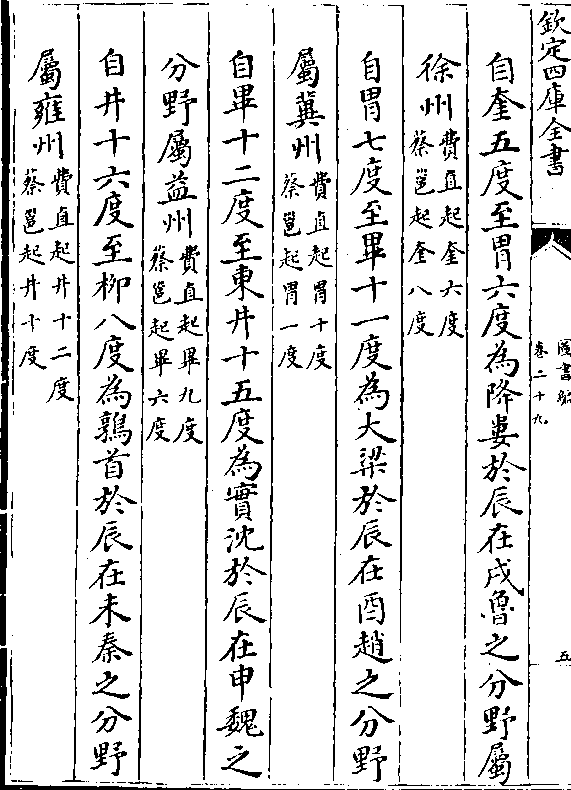 欽定四庫全書
圖書編
卷二十九
五
自奎五度至胃六度為降婁於辰在戌魯之分野屬
徐州費直起奎六度
蔡邕起奎八度
自胃七度至畢十一度為大梁於辰在酉趙之分野
屬冀州費直起胃十度
蔡邕起胃一度
自畢十二度至東井十五度為實沈於辰在申魏之
分野屬益州費直起畢九度
蔡邕起畢六度
自井十六度至柳八度為鶉首於辰在未秦之分野
屬雍州費直起井十二度
蔡邕起井十度